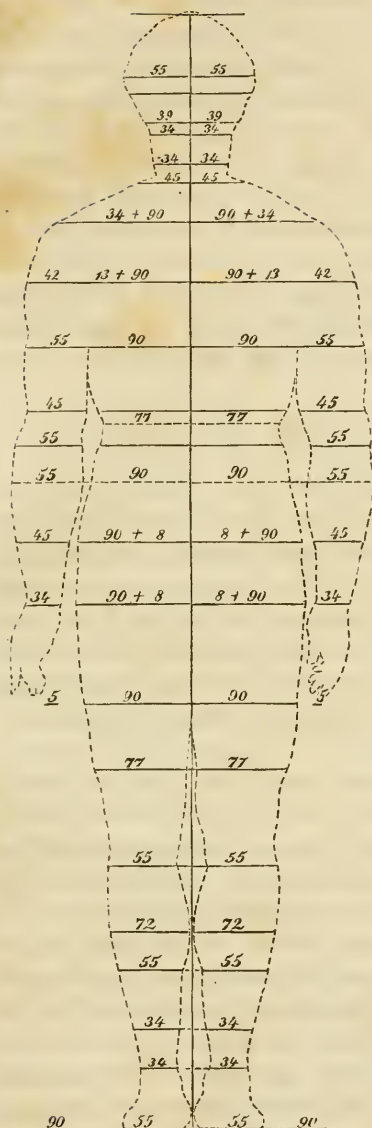 55 55
39 39
34 34
34 34
45 45
34 + 90 90 + 34
42 13 + 90 90 + 13 42
55 90 90 55
45 45
77 77
55 55
55 90 90 55
45 90 + 8 8 + 90 45
34 90 + 8 8 + 90 34
5 5
90 90
77 77
55 55
72 72
55 55
34 34
34 34
90 55 55 90